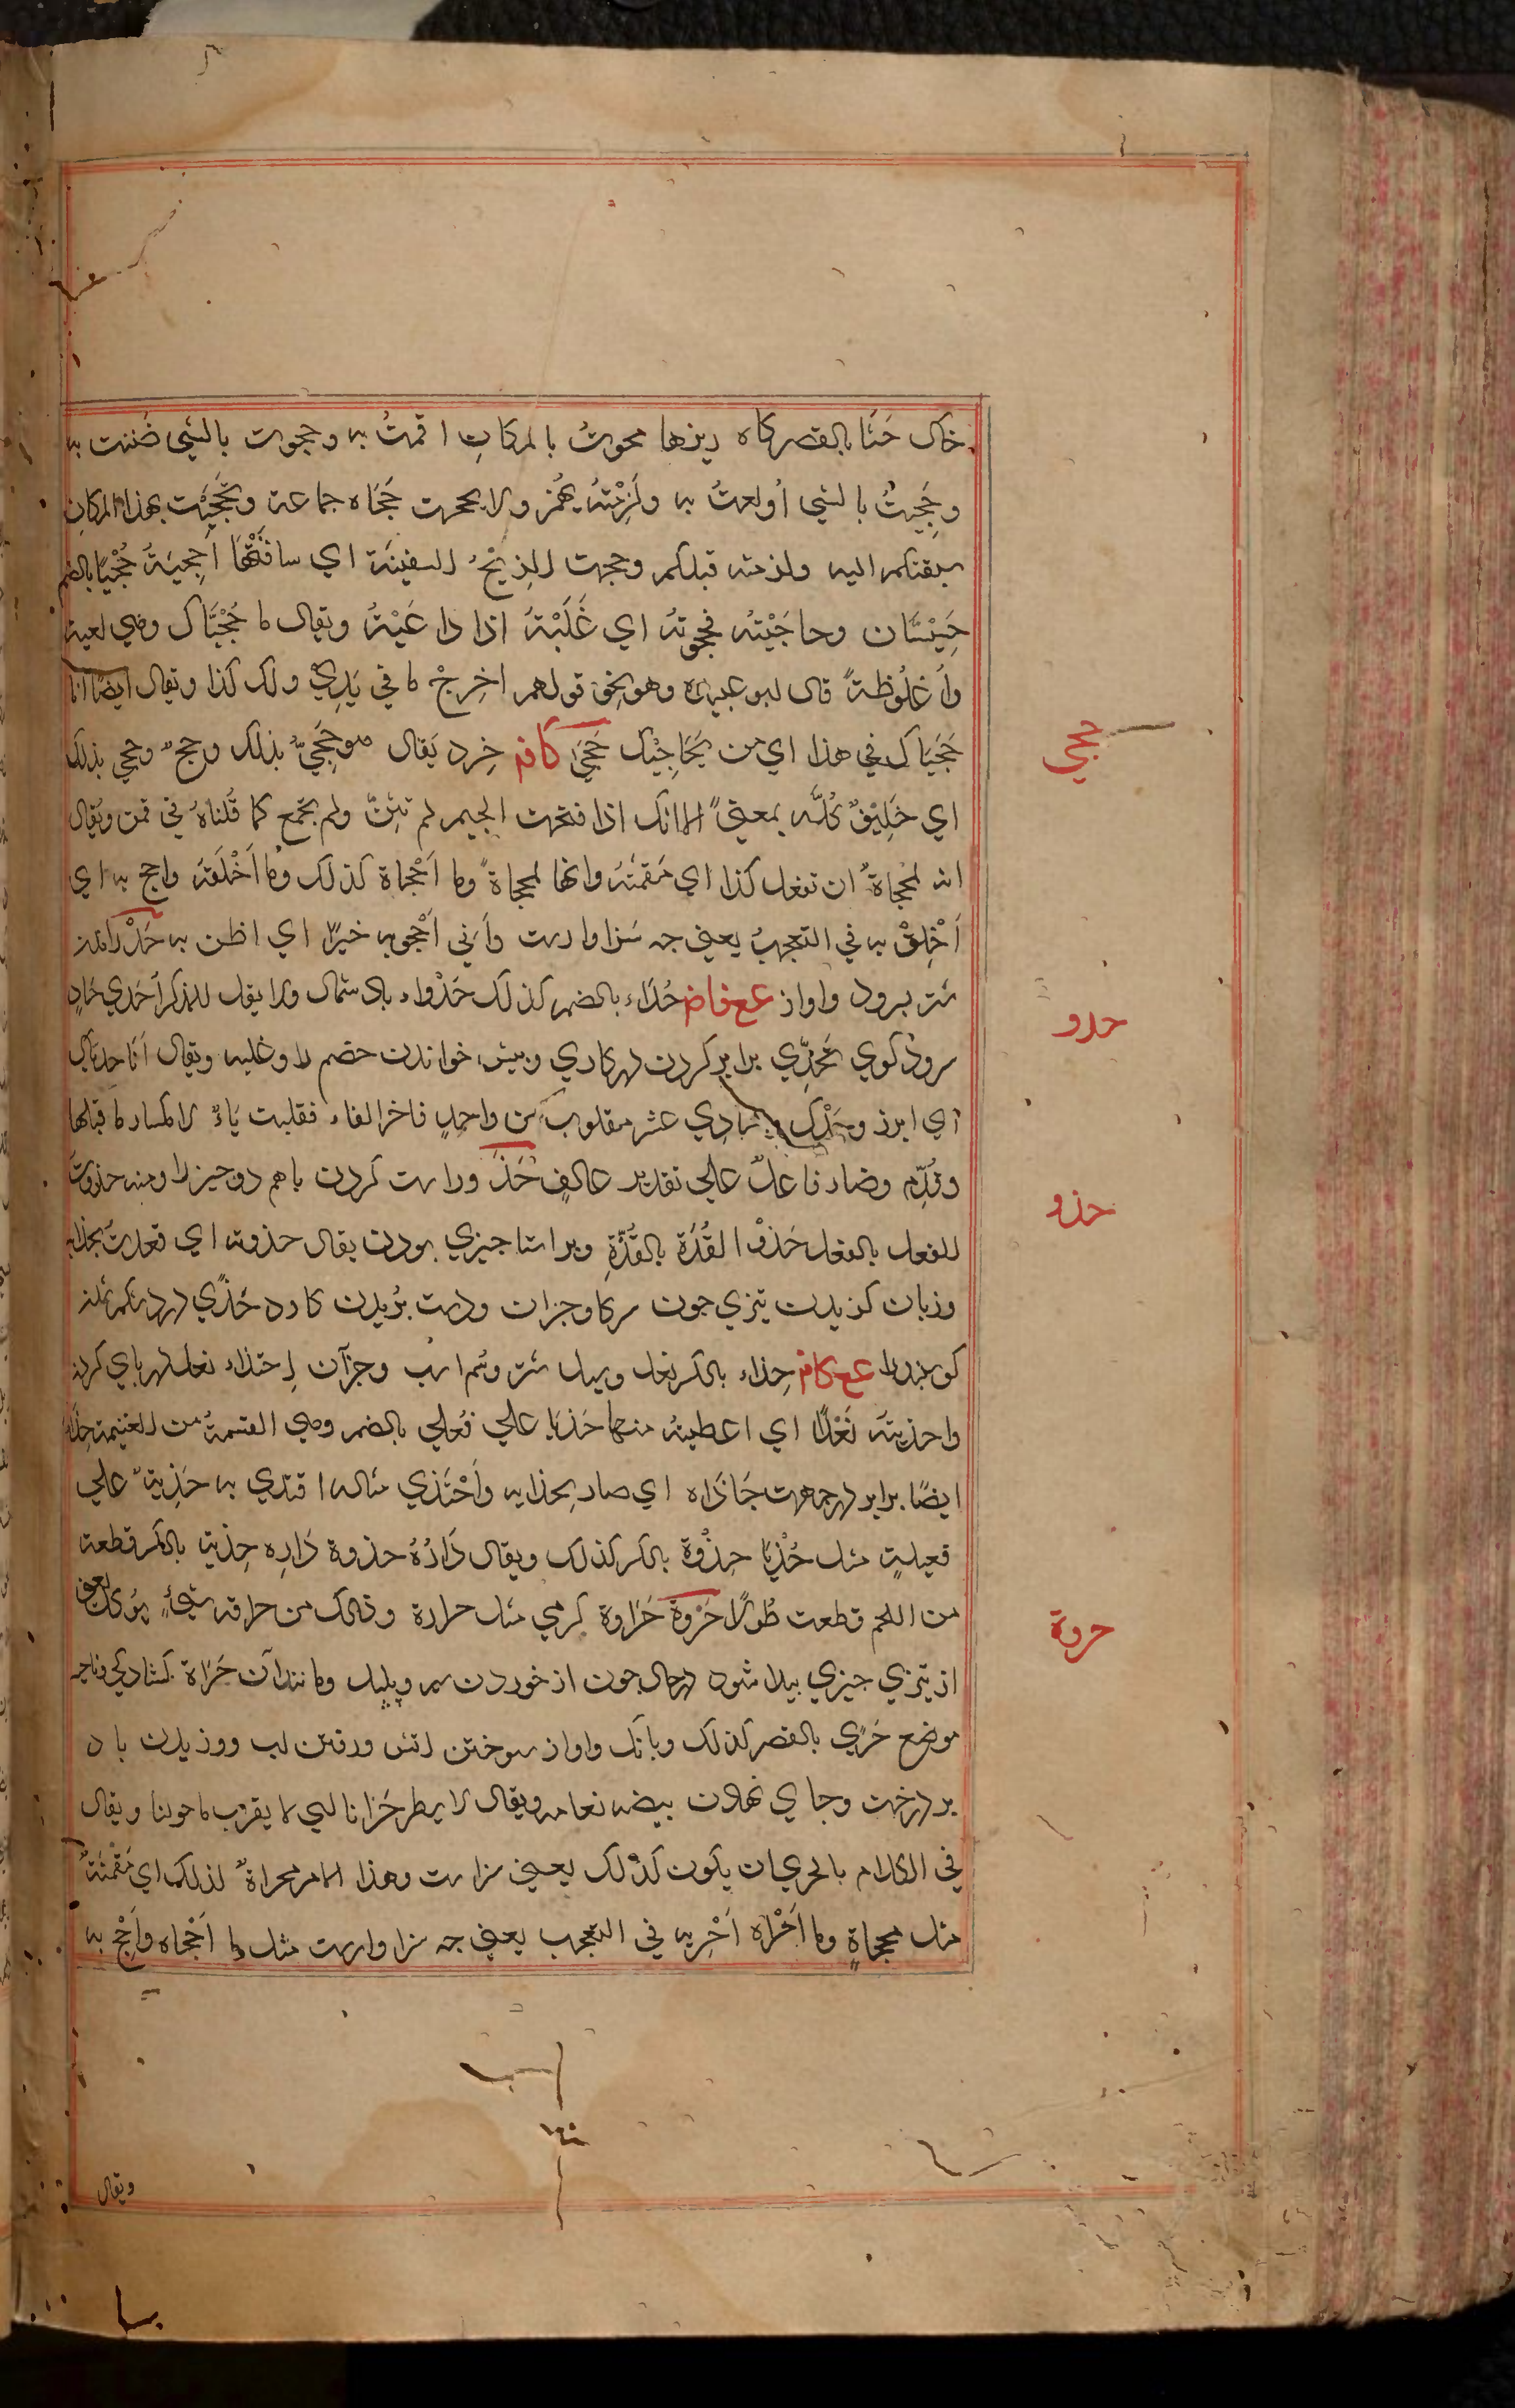 خاک حَثَا بالقصر كاه ريزها محوتُ بالمكانِ اقمتُ به وحجوت بالشي ضننت به
وحَجِيتُ بالشي اُولعتُ به ولَزِمْتهُ يهمز ولا يهمز حَجَاه جماعة وتَحَجَّيْت بهذا المكان
سبقتكم اليه ولزمته قبلكم وحجت الرِيْحُ السفينة اي ساقَتْهَا اُحجيَةُ حُجْيَا بالضم
چِيسْتان وحاجَيْتُه فحجوتهُ اي غَلَبْتهُ اذا داعَيْتهُ ويقال ما حُجْيَّاك وهي لعبة
واُغلُوظةً قال ابو عبيده وهو نحو قولهم اخرِجْ ما في يَدِيْ ولك كذا ويقال ايضًا انا
حُجَيَاك في هذا اي من يُحَاجِيْك حَجَى كافم خِرد يَقال هو حَجِيٌّ بذلك وحجٍ وحجي بذلك
اي خَلِيْقٌ كُلّه بمعنيً الا انك اذا فتحت الجيم لم تثنّ ولم تجمع كما قُلناهُ في قمن ويُقال
انه لمحجاةٌ ان تفعل كذا اي مَقمَنَهُ وانها لمحجاةً وما اَحْجاهُ كذلك وما اَخْلَقه واحج به اي
اَخْلِقْ به في التعجب يعني چه سَزاوارست واَني اَحْجو به خيرًا اي اظن به حَدْو راندن
شتر بسرود واواز عع فاض حُدَاء بالضم كذلك حَدْواء باد شمال ولا يقل للمذكر اَحْدي حَادٍ
سرودکوي تَحَدِّي برابر کردن در كاري وپيش خواندن خصم را وغلبه ويقال اَنَا حديَّاك
اي ابرز وحْدَك حَادِي عشر مقلوب من واحِدٍ فاخر الفاء فقلبت يَاءً لانكسار ما قبلها
وقُدِّم وصار فاعلٌ علي تقدير عالفٍ حَذْو راست كردن باهم دو چيز را ومنه حذوت
النعل بالنعل حَذْوَ القُذَة بالقُذّةِ وبراستا چيزي بودن يقال حذوته اي قعدت بحذايه
وزبان كزيدن تيزي چون سركا وجزان ودست بُريدن كارد حَذًى درد شكم شدن
كوسپند را عع كافم حِذاء بالكسر نعل وسپل شتر وسُم اسب وجزآن اِحتذاء نعل در پاي كردن
واحذيتهُ نَعْلًا اي اعطيتهُ منها حَذيَا علي فُعلي بالضم وهي القسمةُ من الغنيمة حِذَاء
ايضًا برابر در جهت حَاذَاه اي صار بحذايه واَحْتَذي مثاله اقتدي به حَذِيةٌ علي
فعيلةٍ مثل حُذْيَا حِذْوَة بالكسر كذلك ويقال دَارُهُ حذوة دَارِه حِذية بالكسر قطعة
من اللحم قطعت طُولًا حَرْوة حَرَاوة كرمي مثل حرارة وذلك من حرافة شيءٍ يؤكل يعني
از تيزي چيزي پيدا شود در حال چون از خوردن سير وپلپل ومانند آن حَرَاة كشادكي وناحيه
موضع حَرَي بالقصر كذلك وبانك واواز سوختن اتش ورفتن اب ووزيدن باد
بر درخت وجاي نهادن بيضه نعامه ويقال لا يطر حَرانا اي لا يقرب ما حولنا ويقال
في الكلام بالحري ان يكون كذلك يعني سزاست وهذا الامر محراةٌ لذلك اي مَقْمَنَةٌ
مثل محجاةٍ وما اَحْراه اَحْرِ به في التعجب يعني چه سزاوارست مثل ما اَحْجاه واَحْجِ به
حجي
حدو
حذو
حروة
ويقال